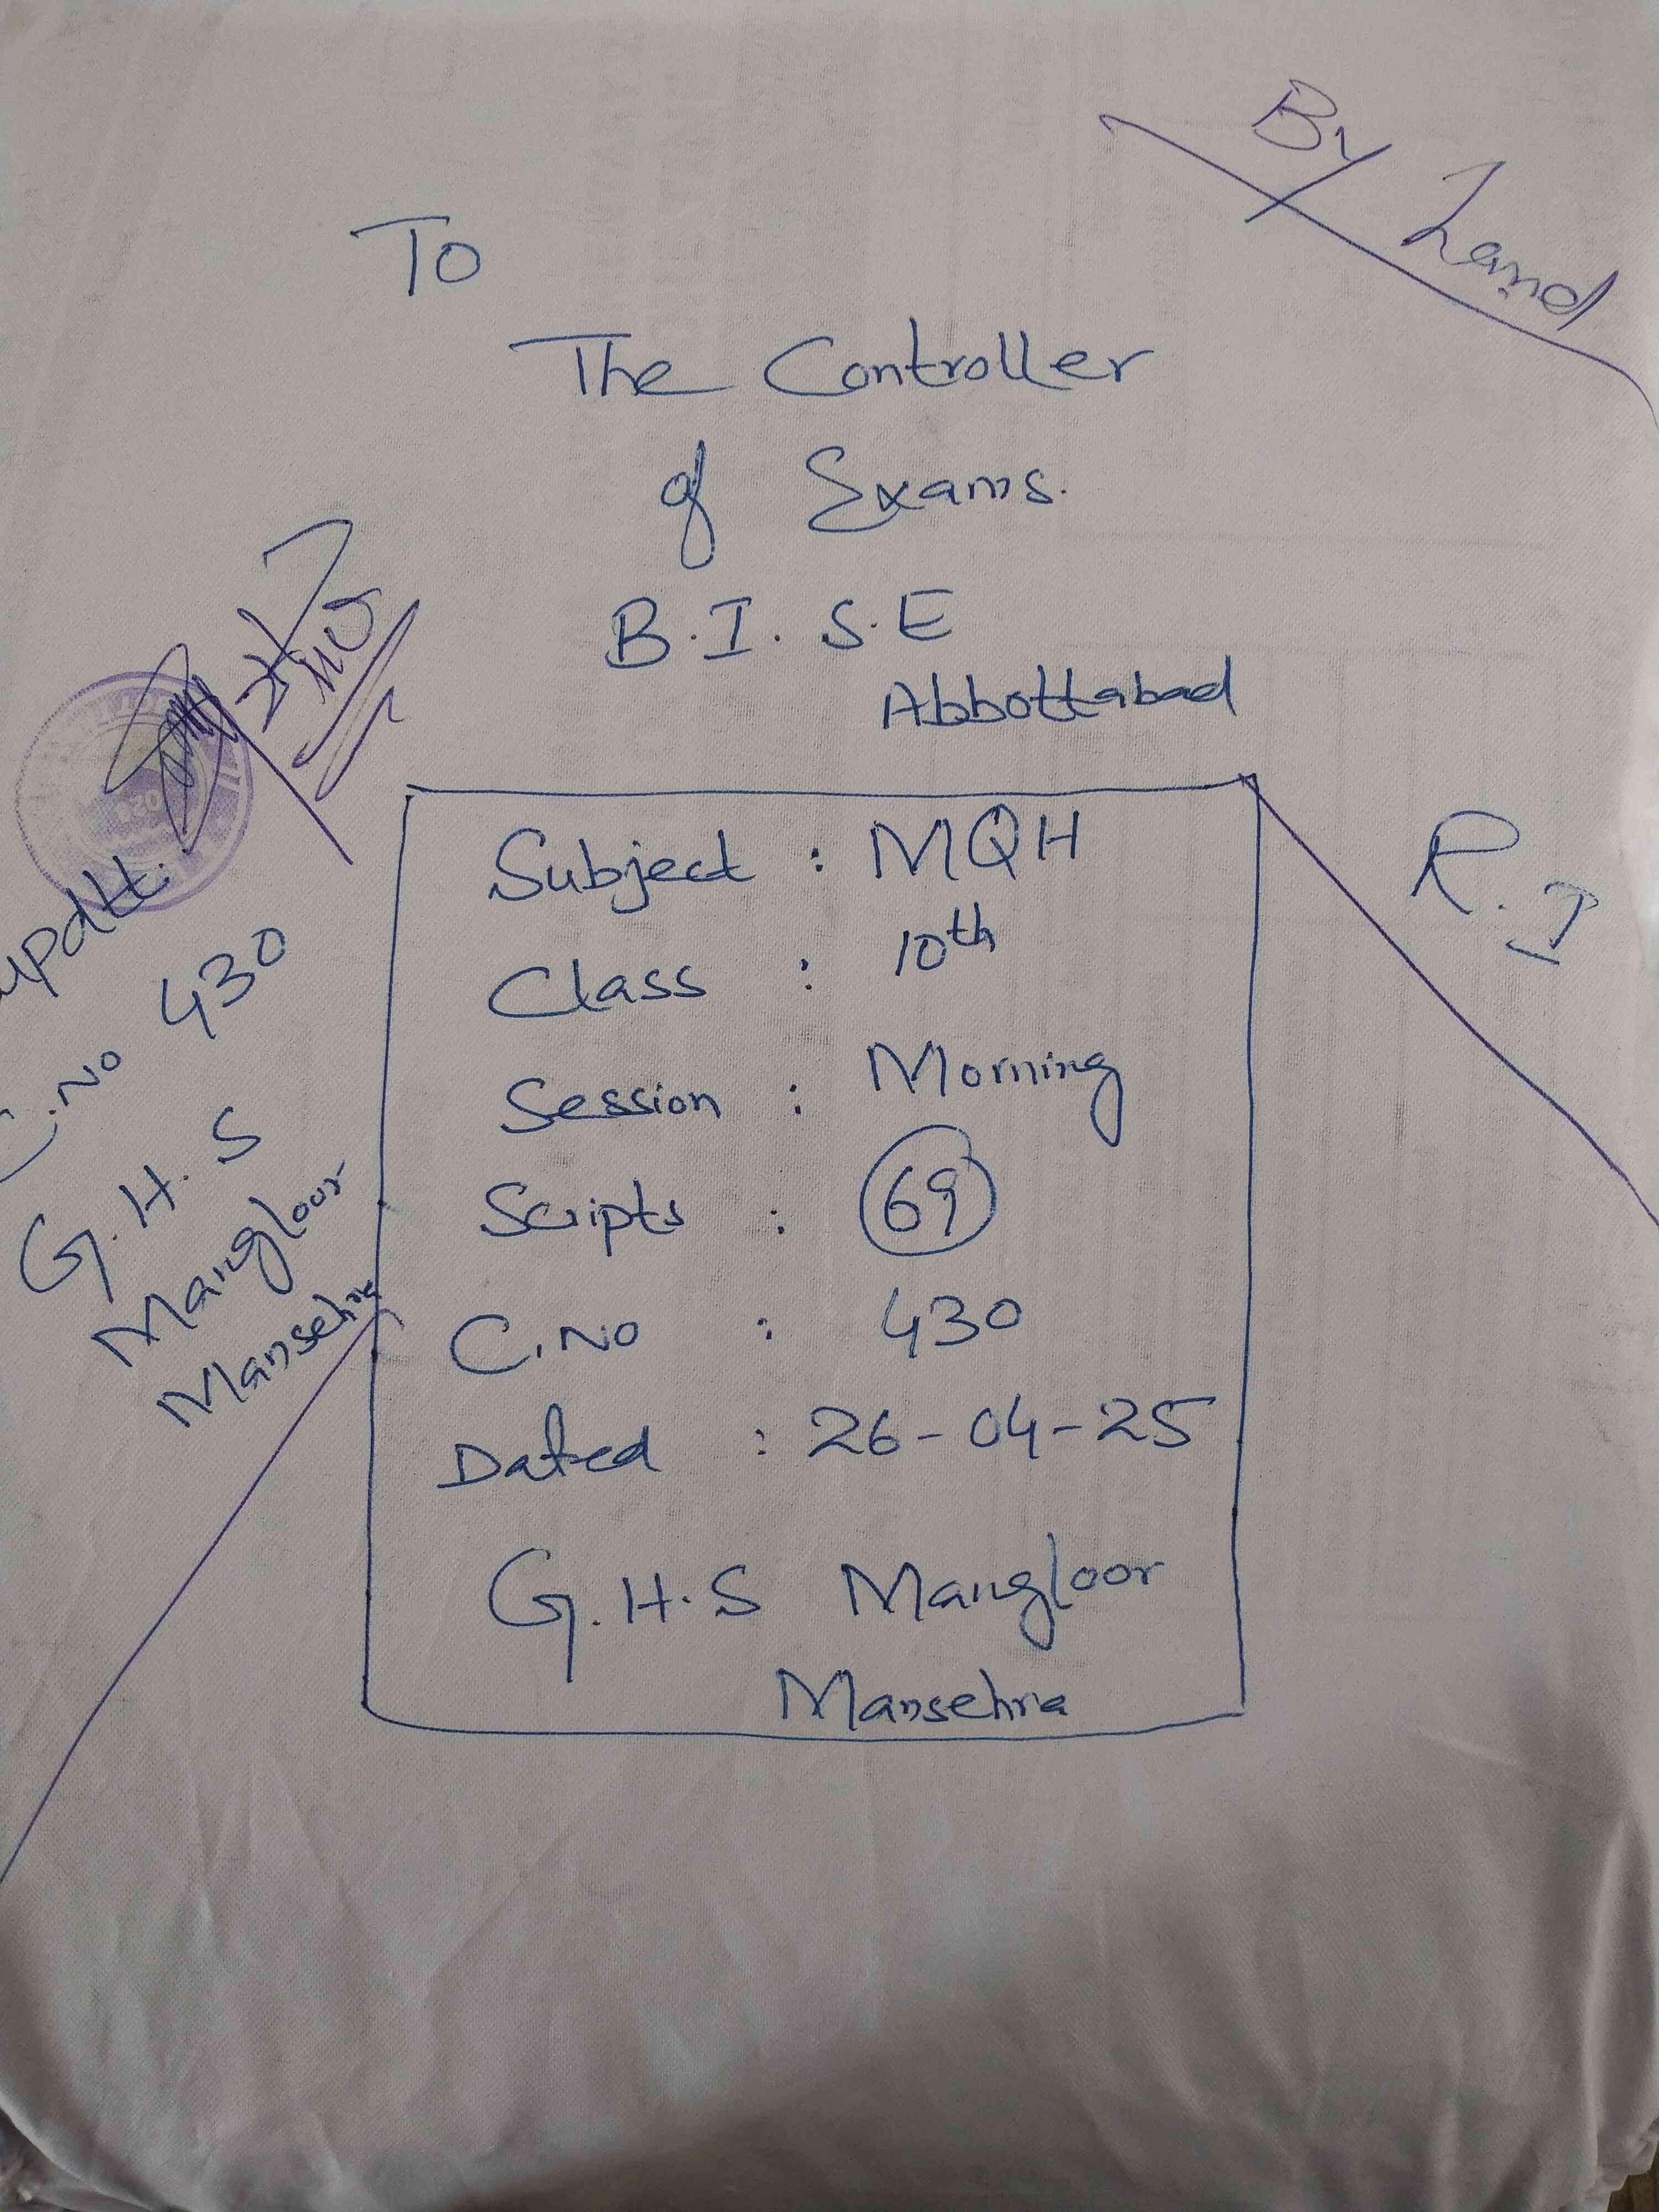 By hand
To
The Controller
of Exams.
B.I.S.E
Abbottabad
Subject : MQH
Class : 10th
Session : Morning
Scripts : 69
C.No : 430
Dated : 26-04-25
G.H.S Mangloor
Mansehra
R.I
updtt.
C.No 430
G.H.S
Mangloor
Mansehra